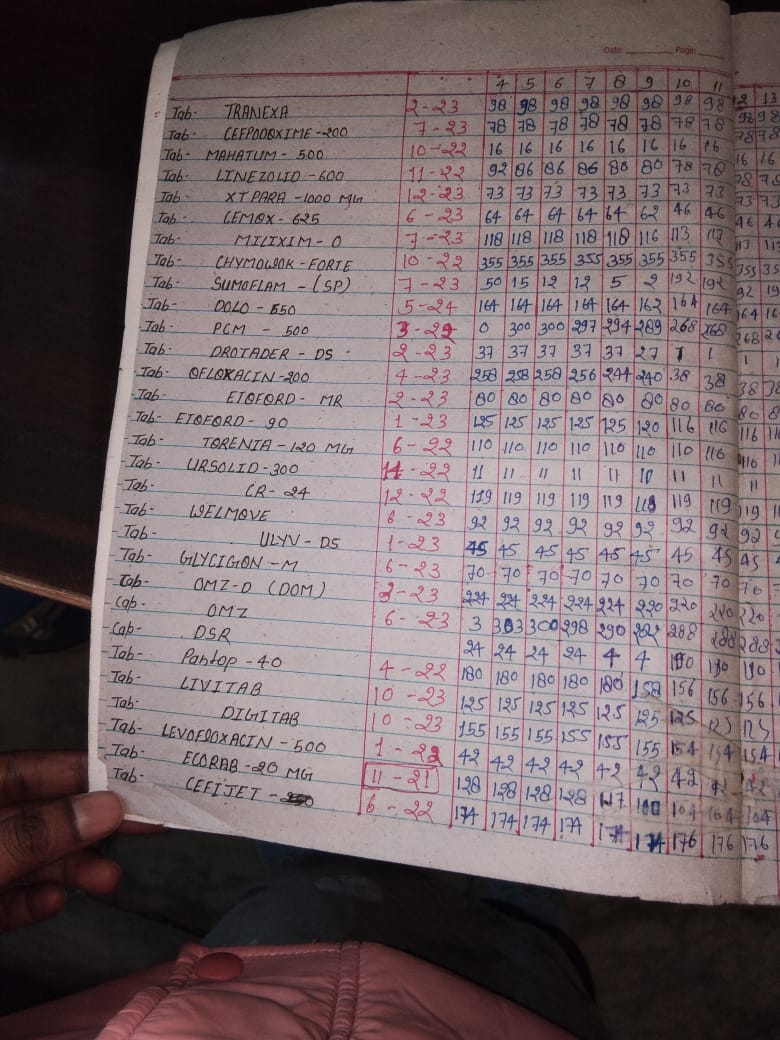 Date: Page:
4 5 6 7 8 9 10 11 12 13
Tab- TRANEXA 2-23 98 98 98 98 98 98 98 98 98 98
Tab- CEFPODOXIME-200 7-23 78 78 78 78 78 78 78 78 78 78
Tab- MAHATUM-500 10-22 16 16 16 16 16 16 16 16 16 16
Tab- LINEZOLID-600 11-22 92 86 86 86 80 80 78 78 78
Tab- XTPARA-1000 MG 12-23 73 73 73 73 73 73 73 73 73 73
Tab- CEMOX-625 6-23 64 64 64 64 64 62 46 46 46
Tab- MILIXIM-O 7-23 118 118 118 118 118 116 113 113 113
Tab- CHYMOWOK-FORTE 10-22 355 355 355 355 355 355 355 355 355
Tab- SUMOFLAM-(SP) 7-23 50 15 12 12 5 2 192 192 92 19
Tab- DOLO-650 5-24 164 164 164 164 164 162 164 164 164 16
Tab- PCM-500 300 300 297 294 289 268 268 268
Tab- DROTADER-DS 2-23 37 37 37 37 37 27 1 1 1
Tab- OFLOXACIN-200 4-23 258 258 258 256 244 240 38 38 38
Tab- ETOFORD-MR 2-23 80 80 80 80 80 80 80 80 80
Tab- ETOFORD-90 1-23 125 125 125 125 125 120 116 116 116 11
Tab- TORENTA-120 MG 6-22 110 110 110 110 110 110 110 110 110
Tab- URSOLID-300 11 11 11 11 11 10 11 11 11
Tab- CR-24 12-22 119 119 119 119 119 119 119 119 11
Tab- WELMOVE 6-23 92 92 92 92 92 92 92 92 92
Tab- ULYV-DS 1-23 45 45 45 45 45 45 45 45 45
Tab- GLYCIGON-M 6-23 70 70 70 70 70 70 70 70 70
Tab- OMZ-D (DOM) 224 224 224 224 224 220 220 220
Cap- OMZ 6-23 3 303 300 298 290 288 288 288
Cap- DSR 24 24 24 24 4 4 190 190
Tab- Pantop-40 4-22 180 180 180 180 180 158 156 156 156
Tab- LIVITAB 10-23 125 125 125 125 125 125 125 125 125
Tab- DIGITAB 10-23 155 155 155 155 155 155 154 154 154
Tab- LEVOFOOXACIN-500 1-22 42 42 42 42 42 42 42 42 42
Tab- ECORAB-20 MG 11-21 128 128 128 128 117 100 104 104 104
Tab- CEFIJET- 6-22 174 174 174 174 174 174 176 176 176